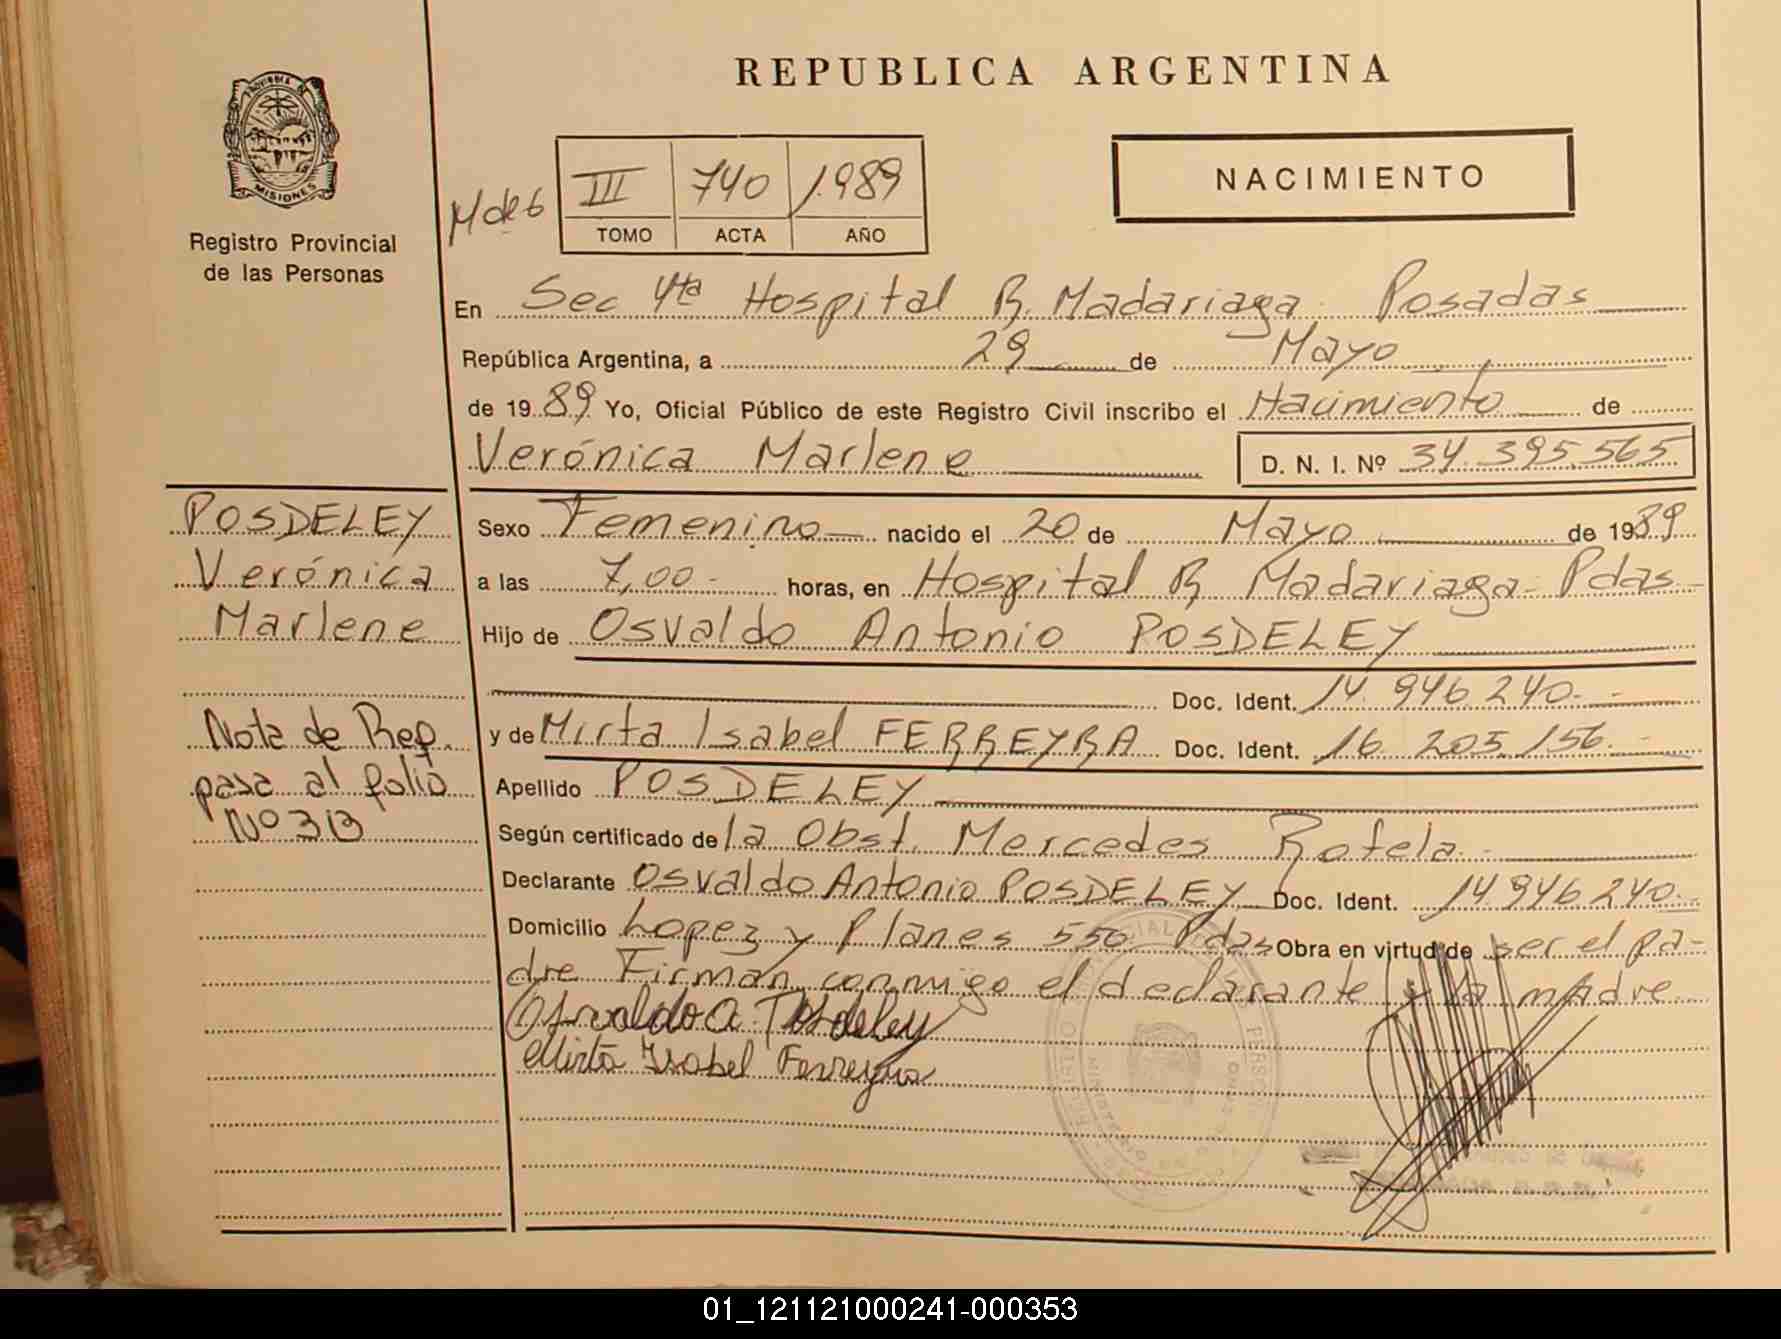 REPUBLICA ARGENTINA
PROVINCIA DE
MISIONES
Registro Provincial
de las Personas
III 740 1989
TOMO ACTA AÑO
NACIMIENTO
En Sec 4ta Hospital R. Madariaga Posadas
República Argentina, a 29 de Mayo
de 1989 Yo, Oficial Público de este Registro Civil inscribo el Nacimiento de
Verónica Marlene D. N. I. Nº 34.395.565
POSDELEY
Verónica
Marlene
Nota de Rep.
pasa al folio
Nº 313
Sexo Femenino nacido el 20 de Mayo de 1989
a las 7,00 horas, en Hospital R Madariaga Pdas
Hijo de Osvaldo Antonio POSDELEY
Doc. Ident. 14.946.240
y de Mirta Isabel FERREYRA Doc. Ident. 16.205.156
Apellido POSDELEY
Según certificado de la Obst. Mercedes Rotela
Declarante Osvaldo Antonio POSDELEY Doc. Ident. 14.946.240
Domicilio Lopez y Planes 550 Pdas Obra en virtud de ser el pa-
dre Firman conmigo el declarante y la madre
Osvaldo A Posdeley
Mirta Isabel Ferreyra
01_121121000241-000353